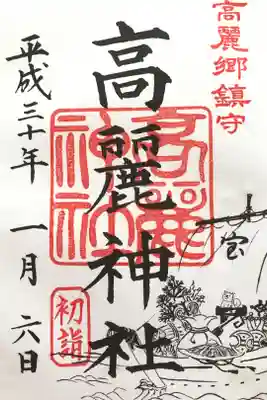 高麗郷鎮守
高麗神社
高麗神社
初詣
宝
平成三十年一月六日